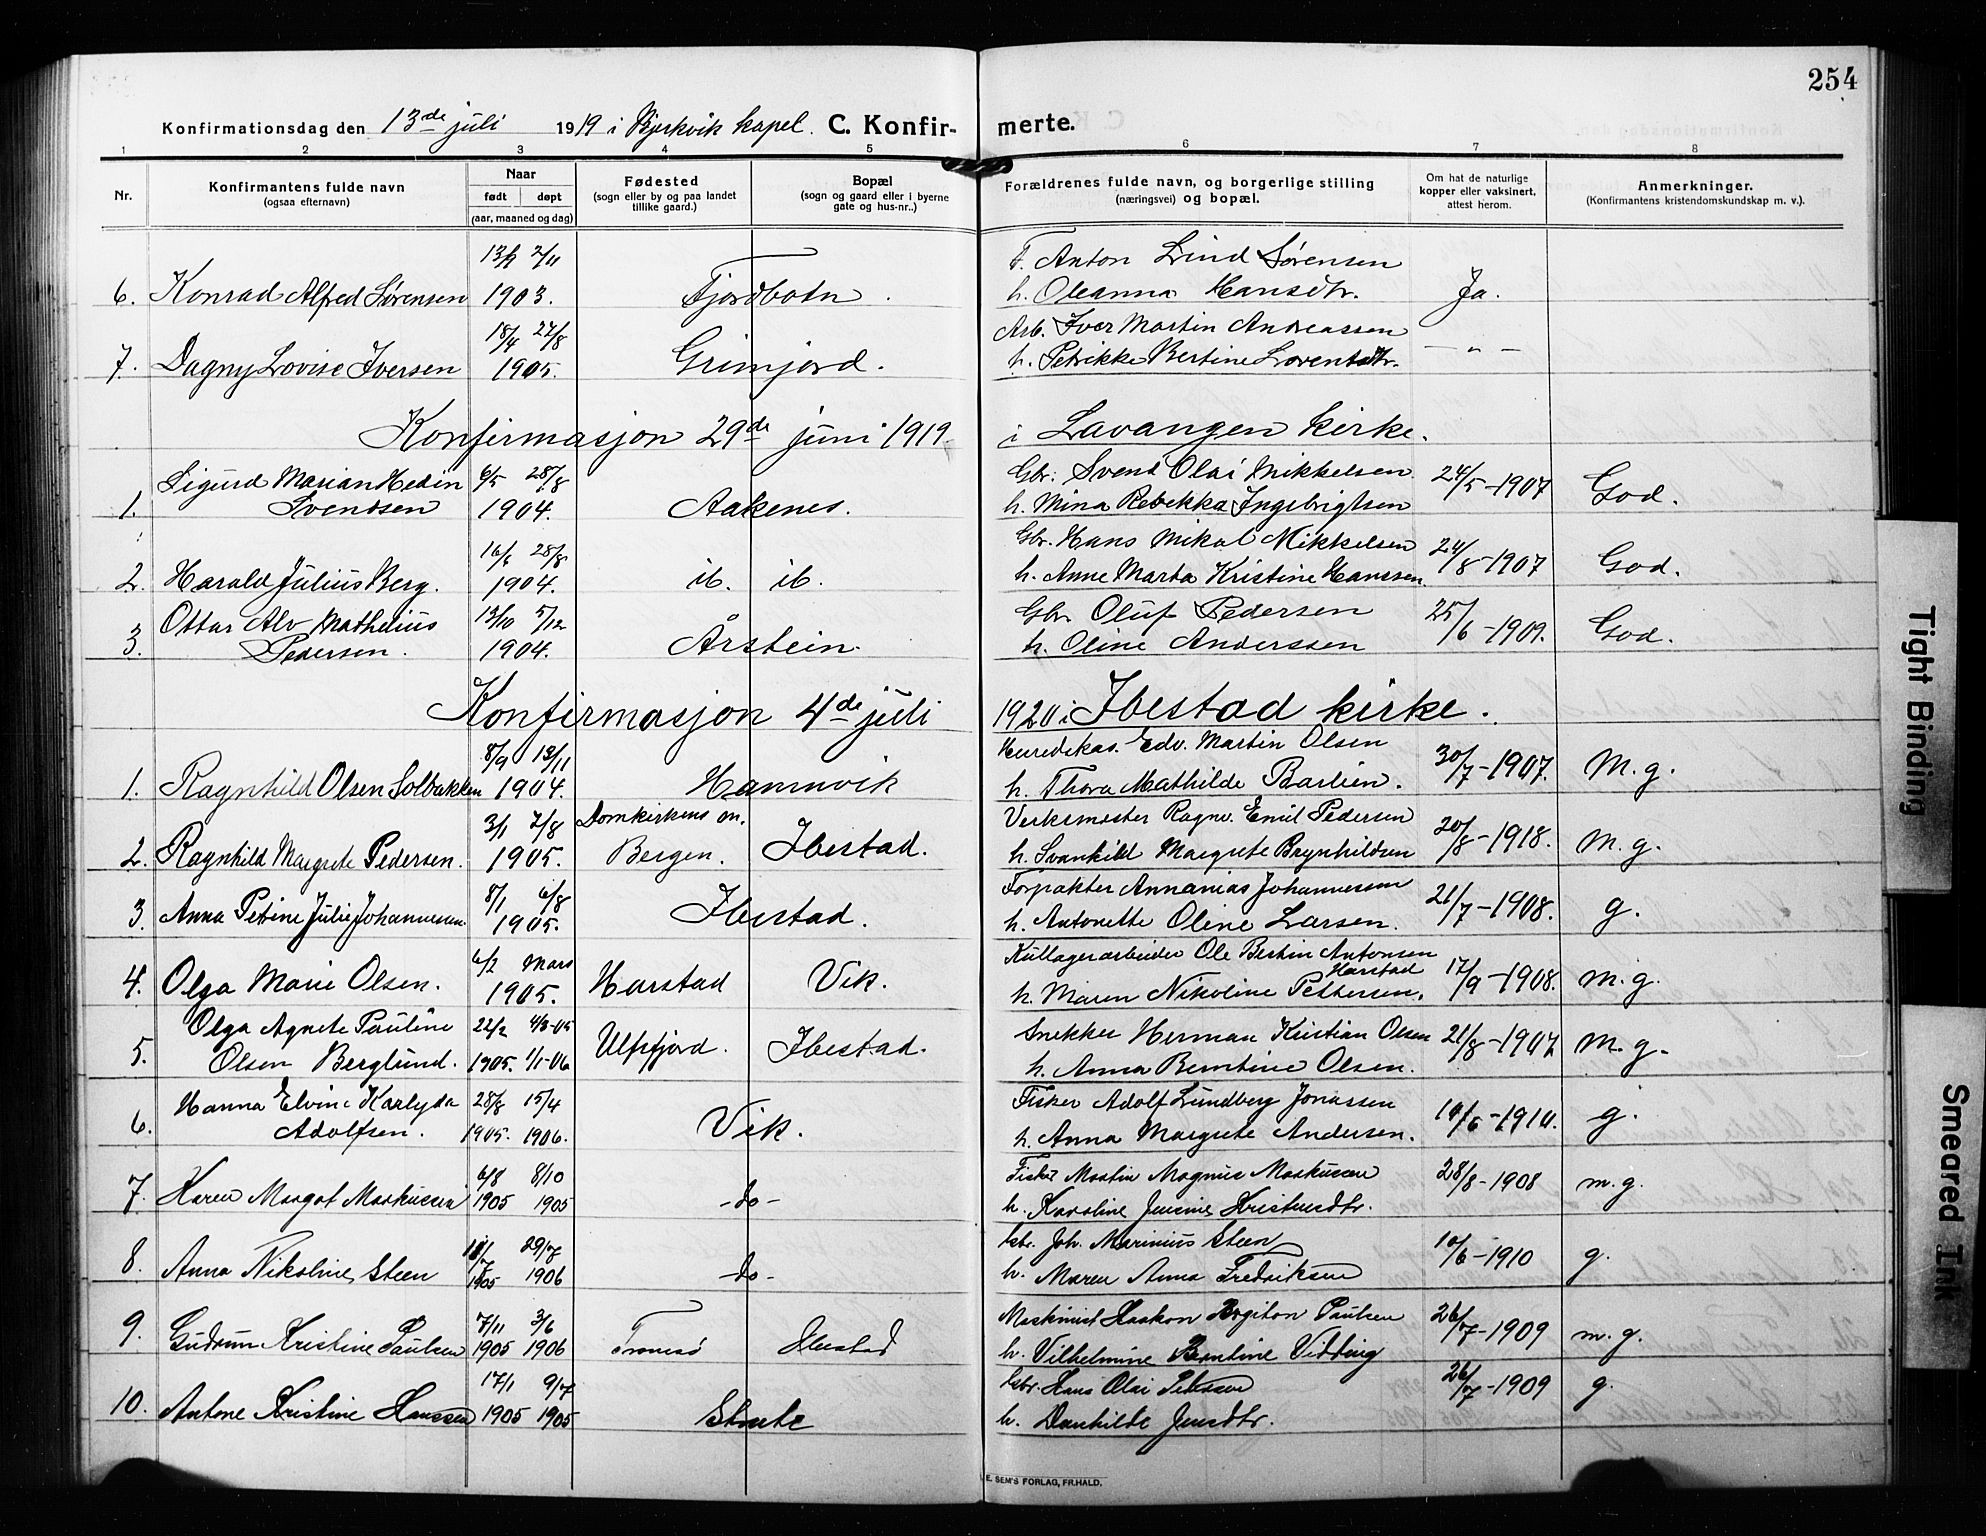 254
Konfirmationsdag den 13de juli 1919 i Bjerkvik kapel. C. Konfir- merte.
1 2 3 4 5 6 7 8
Nr.
Konfirmantens fulde navn
(ogsaa efternavn)
Naar
født døpt
(aar, maaned og dag)
Fødested
(sogn eller by og paa landet
tillike gaard.)
Bopæl
(sogn og gaard eller i byerne
gate og hus-nr..)
Forældrenes fulde navn, og borgerlige stilling
(næringsvei) og bopæl.
Om hat de naturlige
kopper eller vaksinert,
attest herom.
Anmerkninger.
(Konfirmantens kristendomskundskap m. v.).
13/9 2/11 F. Anton Lind Sørensen
6. Konrad Alfred Sørensen 1903. Fjordbotn. h. Oleanna Hansdtr. Ja.
18/4 27/8 Arb. Iver Martin Andreassen
7. Dagny Lovise Iversen 1905. Grimjord. h. Petrikke Bertine Lorentsdtr. — " —
Konfirmasjon 29de juni 1919 i Lavangen kirke.
Sigurd Marian Hedin 6/5 28/8 Gbr. Svend Olai Mikkelsen 24/5-1907
1. Svendsen 1904. Aakenes. h. Mina Rebekka Ingebrigtsen God.
16/6 28/8 Gbr. Hans Mikal Mikkelsen 24/8-1907
2. Harald Julius Berg. 1904. ib. ib. h. Anne Marta Kristine Hanssen. God.
Ottar Alv Mathelius 13/10 5/12 Gbr. Oluf Pedersen 25/6-1909.
3. Pedersen. 1904. Årstein. h. Oline Anderssen God.
Konfirmasjon 4de juli 1920 i Ibestad kirke.
8/9 13/11 Herredskas. Edv. Martin Olsen 30/7-1907.
1. Ragnhild Olsen Solbakken 1904. Hamnvik h. Thora Mathilde Barlien. M. g.
3/1 7/8 Domkirkens m. Verksmester Ragnv. Emil Pedersen 20/8-1918.
2. Ragnhild Margrete Pedersen. 1905. Bergen. Ibestad. h. Svanhild Margrete Brynhildsen M. g.
8/1 6/8 Forpakter Annanias Johannesen 21/7-1908.
3. Anna Petrine Julie Johannesen 1905. Ibestad. h. Antonette Oline Larsen. g.
6/2 Mars Kullagerarbeider Ole Bertin Antonsen
Harstad
4. Olga Marie Olsen. 1905. Harstad Vik. h. Maren Nikoline Pettersen. 17/9-1908. m. g.
Olga Agnete Pauline 22/2 4/3-05 Snekker Herman Kristian Olsen 21/8-1907
5. Olsen Berglund. 1905. 1/1-06 Ulfsfjord. Ibestad. h. Anna Berntine Olsen. M. g.
Hanna Elvine Karlyda 28/8 15/4 Fisker Adolf Lundberg Jonassen 10/6-1910.
6. Adolfsen. 1905. 1906. Vik. h. Anna Margrete Andersen. g.
6/8 8/10 Fisker Martin Magnus Markussen 28/8-1908
7. Karen Margot Markussen 1905 1905 -do- h. Karoline Jensine Kristensdtr. m. g.
11/7 29/7 Gbr. Joh. Marinius Steen 10/6-1910
8. Anna Nikoline Steen 1905 1906 -do- h. Maren Anna Fredriksen g.
7/11 3/6 Maskinist Haakon Birgiton Paulsen 26/7-1909
9. Gudrun Kristine Paulsen 1905 1906 Tromsø Ibestad h. Vilhelmine Berntine Vidding m. g.
17/1 9/7 Gbr. Hans Olai Pettersen 26/7-1909
10. Antone Kristine Hanssen 1905 1905 h. Danhilde Jensdtr. g.
E. SEM'S FORLAG, FR.HALD.
Tight Binding
Smeared Ink